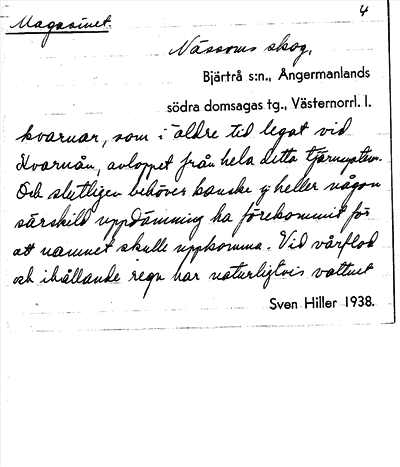 Magasinet.
4
Nässoms skog,
Bjärtrå s:n., Ångermanlands
södra domsagas tg., Västernorrl. l.
kvarnar, som i äldre tid legat vid
Kvarnån, avloppet från hela detta tjärnsystem.
Och slutligen behöver kanske ej heller någon
särskild uppdämning ha förekommit för
att namnet skulle uppkomma. Vid vårflod
och ihållande regn har naturligtvis vattnet
Sven Hiller 1938.